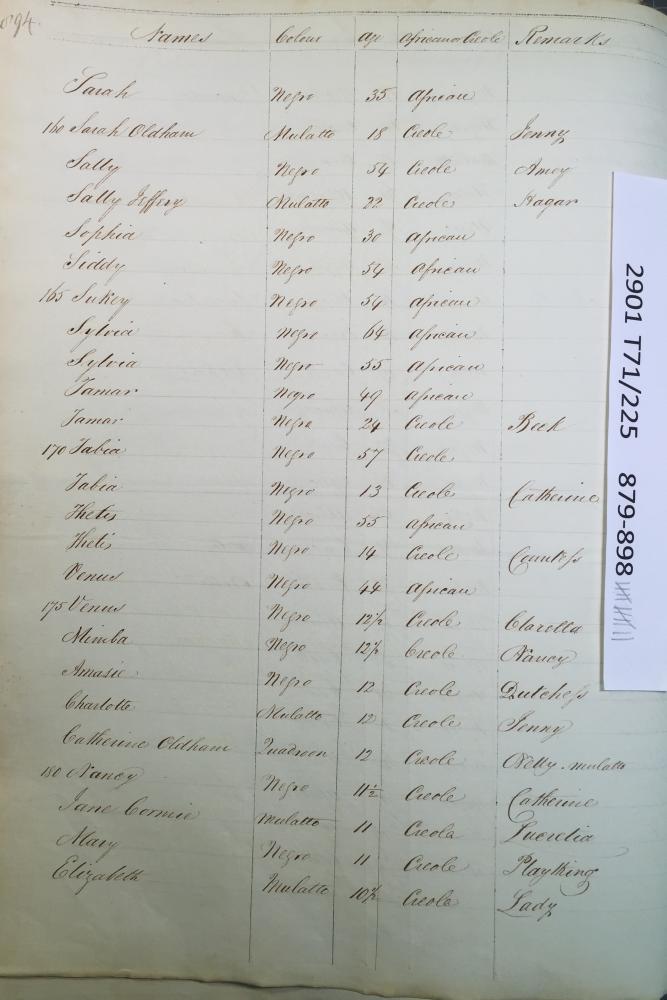 894.
Names Colour Age African or Creole Remarks
Sarah Negro 35 African
160 Sarah Oldham Mulatto 18 Creole Jenny
Sally Negro 54 Creole Amey
Sally Jeffery Mulatto 22 Creole Hagar
Sophia Negro 30 African
Siddy Negro 54 African
165 Sukey Negro 54 African
Sylvia Negro 64 African
Sylvia Negro 55 African
Tamar Negro 49 African
Tamar Negro 24 Creole Beck
170 Tabia Negro 57 Creole
Tabia Negro 13 Creole Catherine
Thetis Negro 55 African
Thetis Negro 14 Creole Countess
Venus Negro 44 African
175 Venus Negro 12½ Creole Claretta
Mimba Negro 12½ Creole Nancy
Amasie Negro 12 Creole Dutchess
Charlotte Mulatto 12 Creole Jenny
Catherine Oldham Quadroon 12 Creole Nelly Mulatto
180 Nancy Negro 11½ Creole Catherine
Jane Cormie Mulatto 11 Creole Lucretia
Mary Negro 11 Creole Plaything
Elizabeth Mulatto 10½ Creole Lady
2901 T71/225 879-898